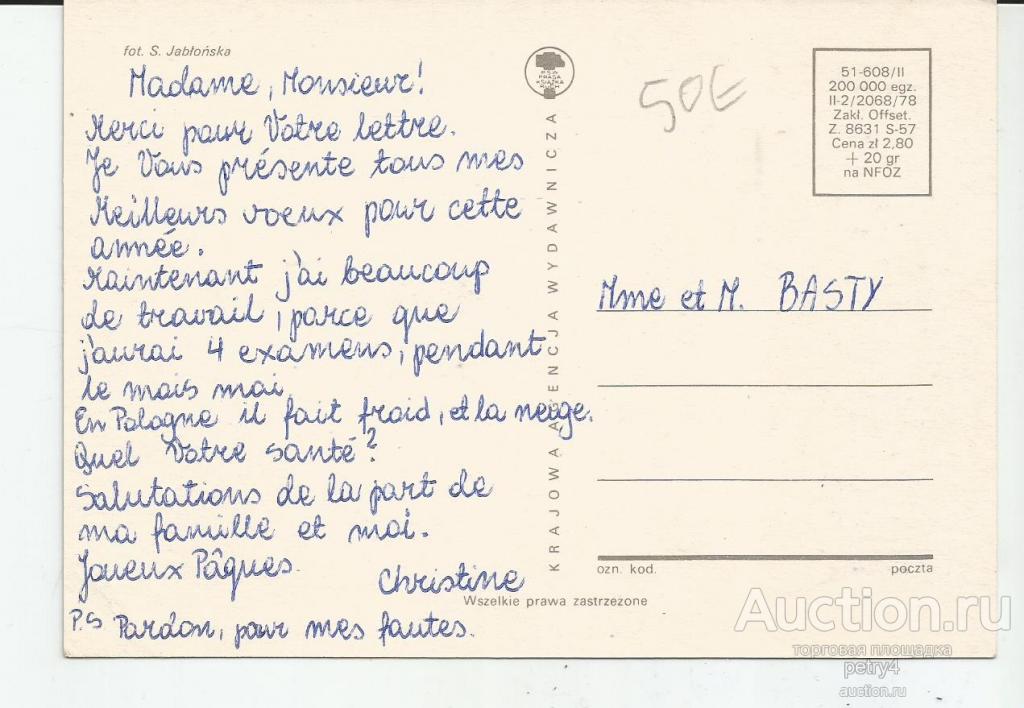 fot. S. Jabłońska
Madame, Monsieur!
Merci pour Votre lettre.
Je Vous présente tous mes
Meilleurs voeux pour cette
année.
Maintenant j'ai beaucoup
de travail, parce que
j'aurai 4 examens, pendant
le mois mai.
En Pologne il fait froid, et la neige.
Quel Votre santé?
Salutations de la part de
ma famille et moi.
Joueux Pâques.
Christine
P.S Pardon, pour mes fautes.
RSW
PRASA
KSIĄŻKA
RUCH
KRAJOWA AGENCJA WYDAWNICZA
50E
51-608/II
200 000 egz.
II-2/2068/78
Zakł. Offset.
Z. 8631 S-57
Cena zł 2,80
+ 20 gr
na NFOZ
Mme et M. BASTY
ozn. kod. poczta
Wszelkie prawa zastrzeżone
Auction.ru
торговая площадка
petry4
auction.ru